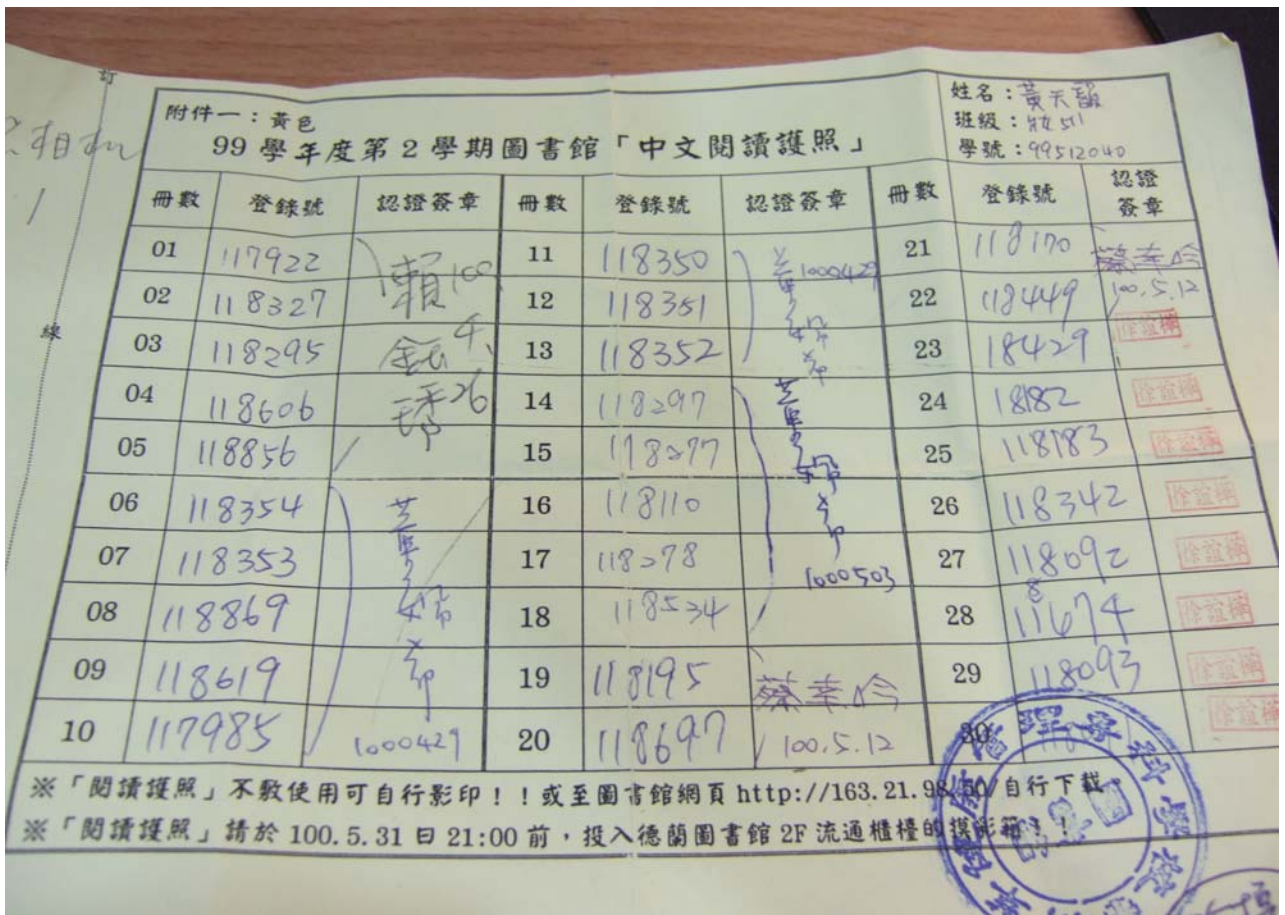 訂
線
附件一：黃色
99 學年度第 2 學期圖書館「中文閱讀護照」
姓名：黃天韻
班級：妝訓
學號：99512040
冊數 登錄號 認證簽章 冊數 登錄號 認證簽章 冊數 登錄號 認證簽章
01 117922 賴 100 11 118350 1000429 21 118170 蔡幸吟
02 118327 12 118351 22 118449 100.5.12
03 118295 鈺 4. 13 118352 23 18429 徐誼楠
04 118606 琇 26 14 118297 24 18182 徐誼楠
05 118856 15 118277 25 118183 徐誼楠
06 118354 16 118110 26 118342 徐誼楠
07 118353 17 118278 1000503 27 118092 徐誼楠
08 118869 18 118534 28 118674 徐誼楠
09 118619 19 118195 蔡幸吟 29 118093 徐誼楠
10 117985 1000429 20 118697 100.5.12 30 徐誼楠
※「閱讀護照」不敷使用可自行影印！！或至圖書館網頁 http://163.21.98.50/自行下載
※「閱讀護照」請於 100.5.31 日 21:00 前，投入德蘭圖書館 2F 流通櫃檯的摸彩箱！！